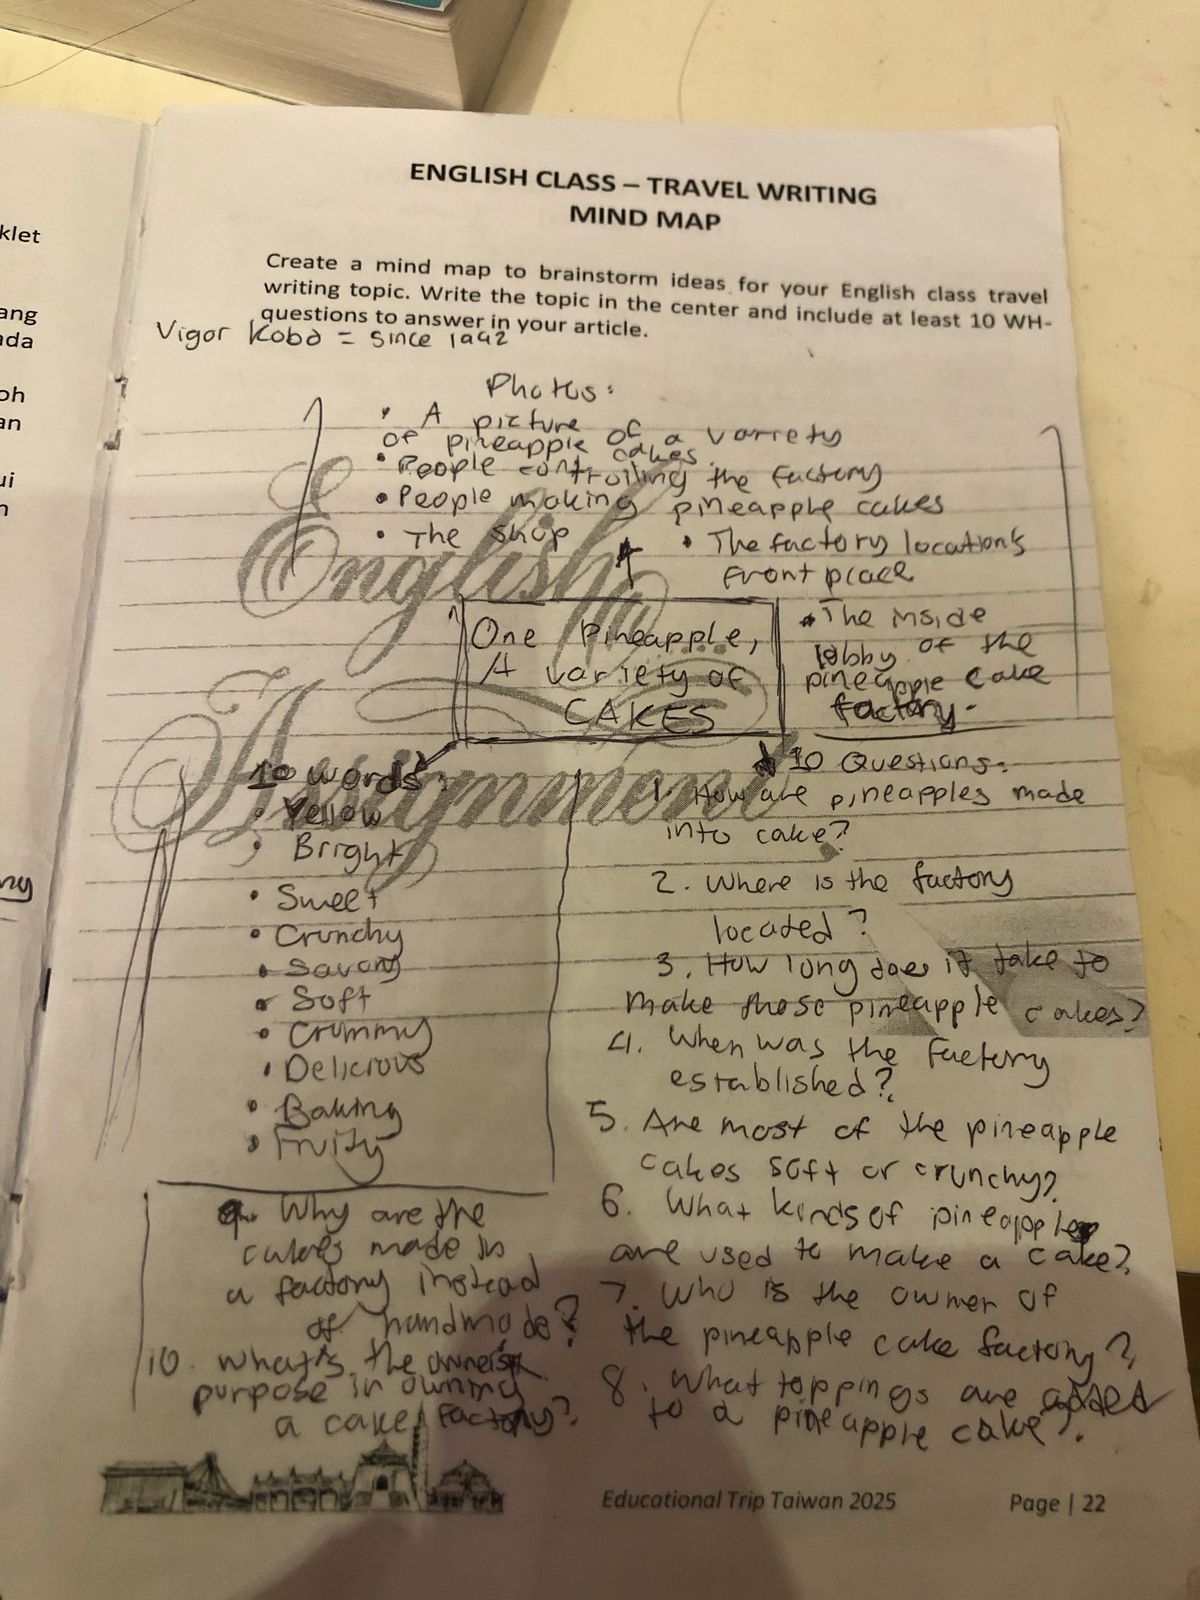 klet
ang
ada
oh
an
ui
n
ng
ENGLISH CLASS – TRAVEL WRITING
MIND MAP
Create a mind map to brainstorm ideas for your English class travel
writing topic. Write the topic in the center and include at least 10 WH-
questions to answer in your article.
Vigor Kobo = since 1992
Photos:
• A picture of a variety
of pineapple cakes
• People controlling the factory
• People making pineapple cakes
• The shop
• The factory location's
front place
• The inside
lobby of the
pineapple cake
factory.
English
Assignment
One Pineapple,
A variety of
CAKES
10 words:
• Yellow
• Bright
• Sweet
• Crunchy
• Savory
• Soft
• Crummy
• Delicious
• Baking
• Fruity
10 Questions:
1. How are pineapples made
into cake?
2. Where is the factory
located?
3. How long does it take to
make those pineapple cakes?
4. When was the factory
established?
5. Are most of the pineapple
cakes soft or crunchy?
6. What kinds of pineapples
are used to make a cake?
7. Who is the owner of
the pineapple cake factory?
8. What toppings are added
to a pineapple cake?
9. Why are the
cakes made in
a factory instead
of handmade?
10. What's the owner's
purpose in owning
a cake factory?
Educational Trip Taiwan 2025
Page | 22